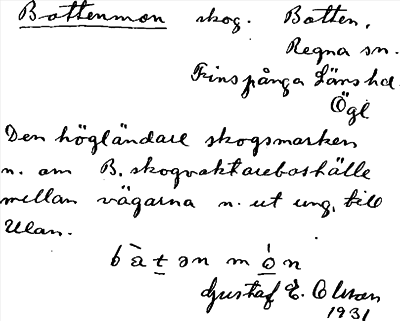 Bottenmon skog. Botten,
Regna sn.
Finspånga Länshd.
Ögl
Den högländare skogsmarken
n. om B. skogvaktareboställe
mellan vägarna n. ut ung. till
Ulan.
Gustaf E. Olson
1931